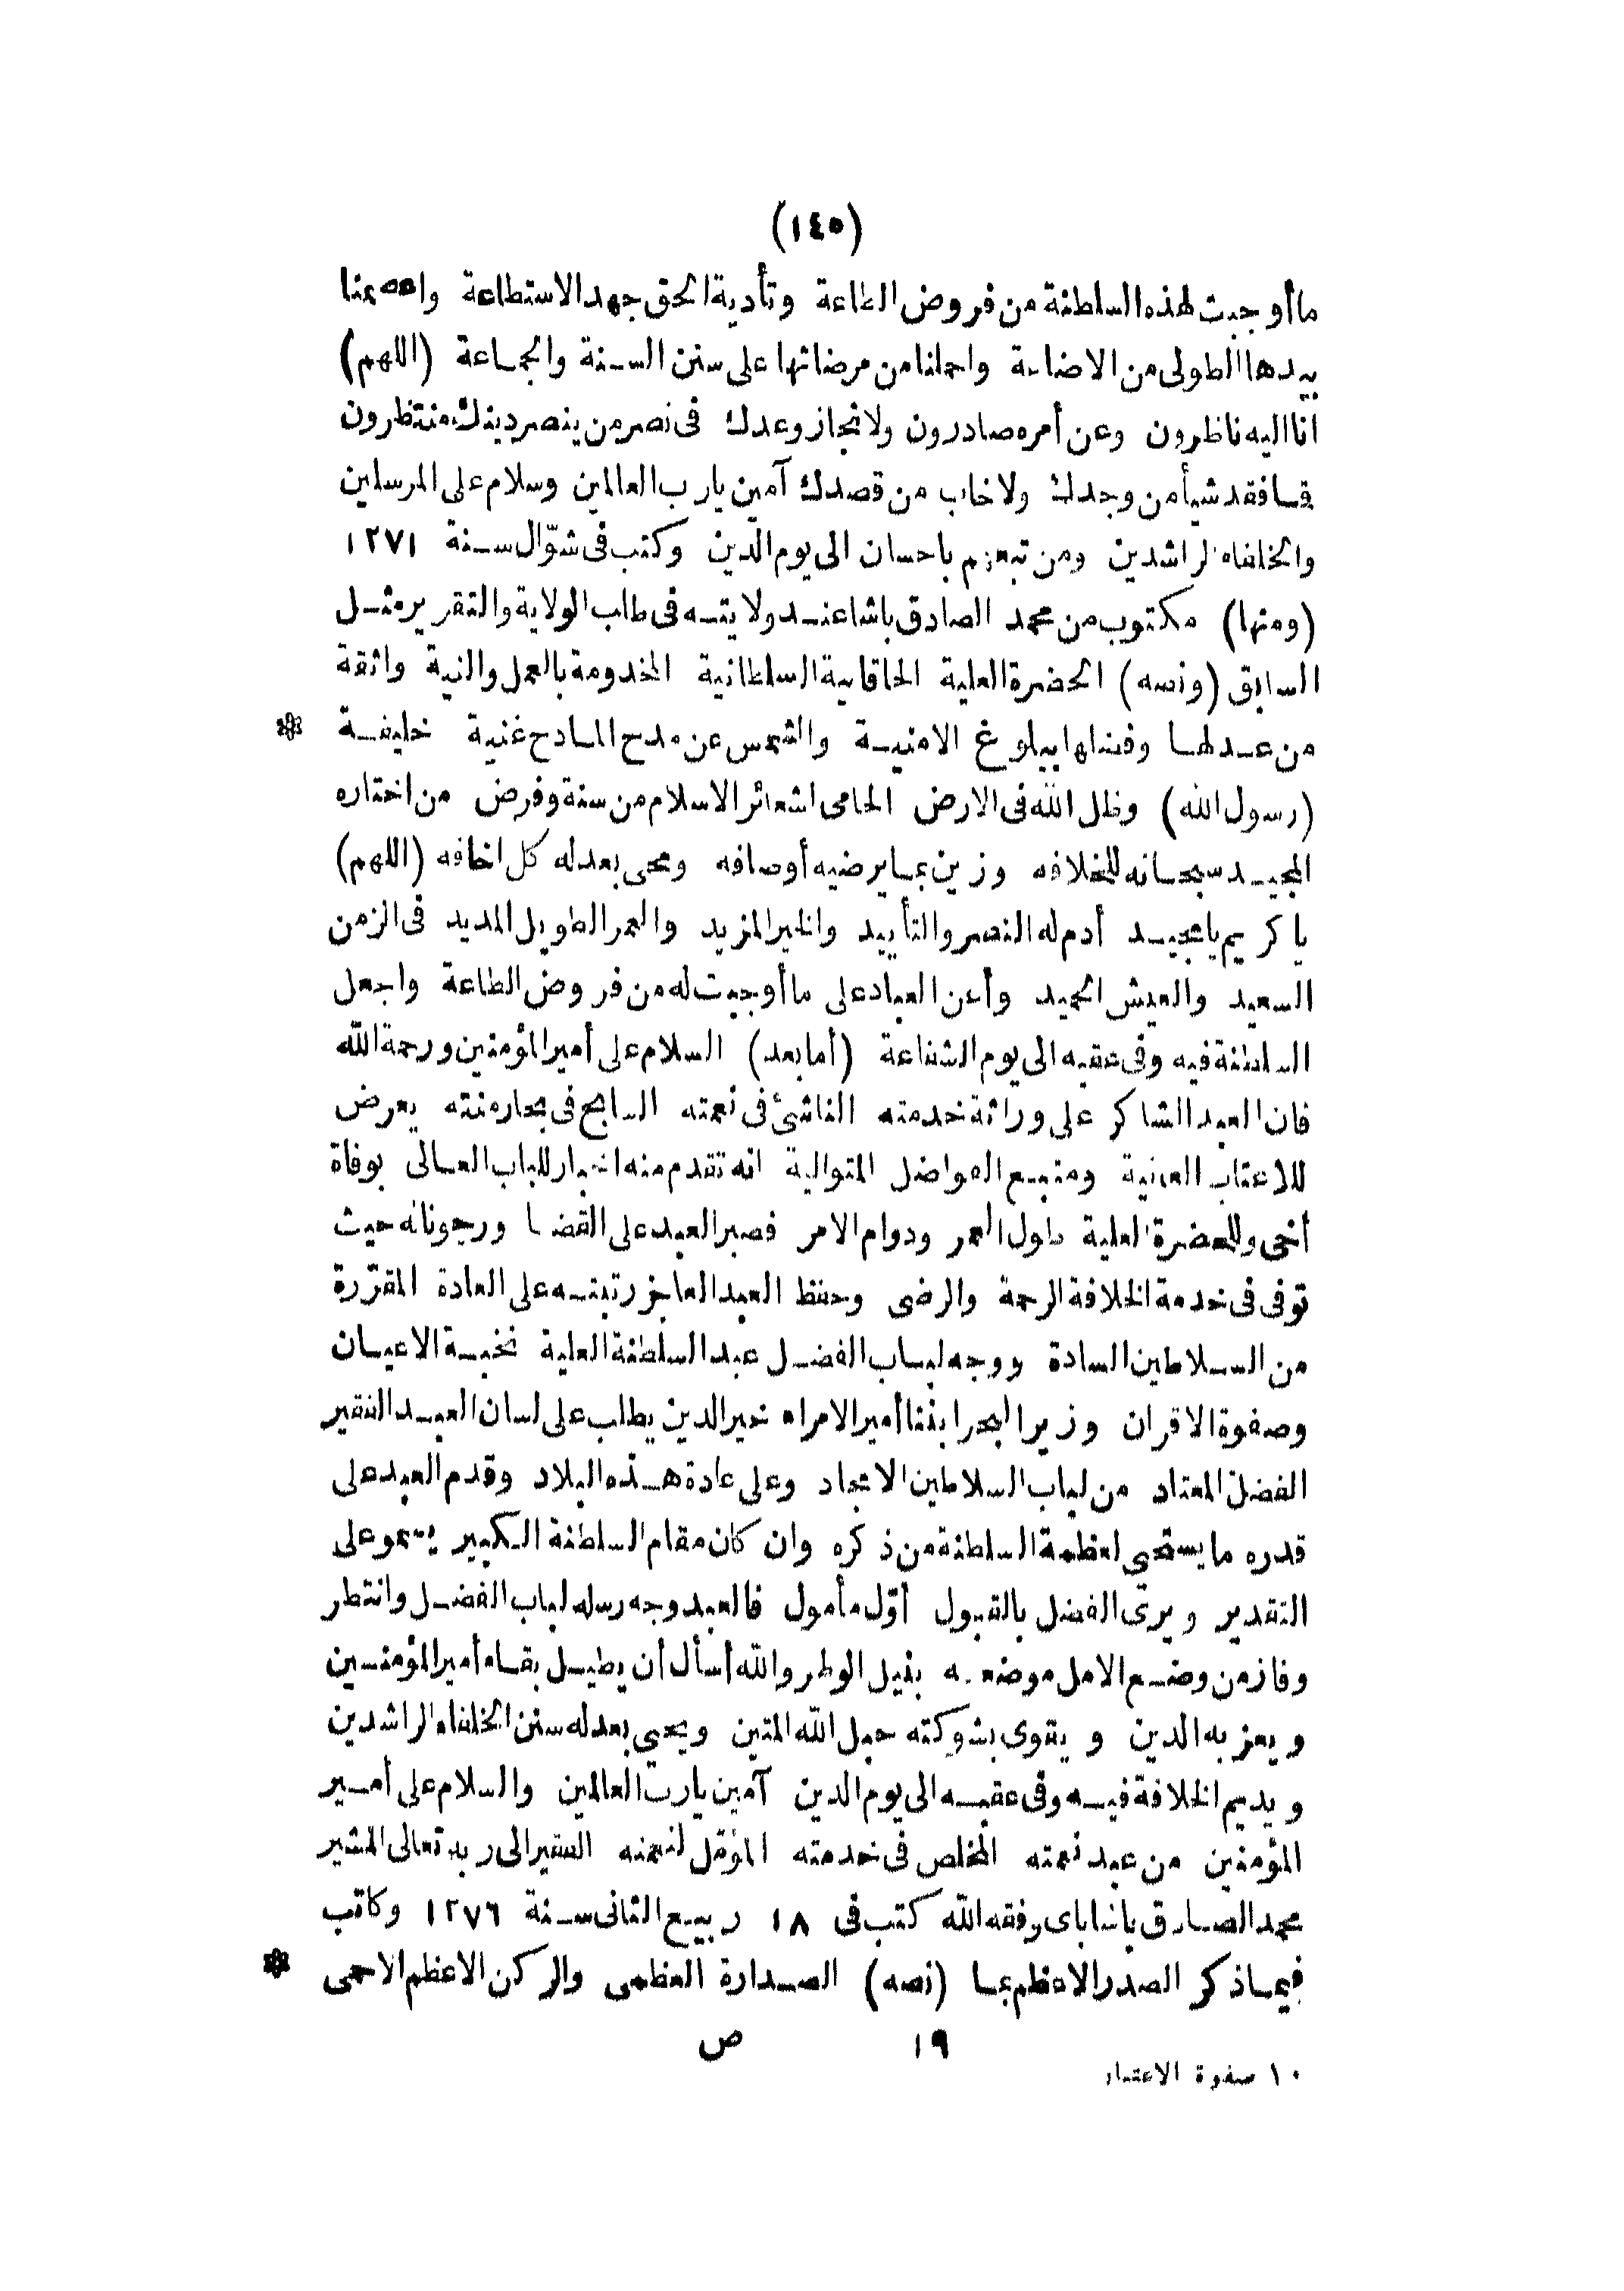 (١٤٥)
ما أوجبت لهذه السلطنة من فروض الطاعة وتأدية الحق جهد الاستطاعة واعصمنا
بيدها الطولى من الاضاعة واحملنا من مرضاتها على سنن السنة والجماعة (اللهم)
انا اليه ناظرون وعن أمره صادرون ولانجاز وعدك فى نصر من ينصر دينك منتظرون
فما فقد شيأ من وجدك ولا خاب من قصدك آمين يارب العالمين وسلام على المرسلين
والخلفاء الراشدين ومن تبعهم باحسان الى يوم الدين وكتب فى شوّال سنة ١٢٧١
(ومنها) مكتوب من محمد الصادق باشا عند ولايته فى طلب الولاية والتقرير مثل
السابق (ونصه) الحضرة العلية الخاقانية السلطانية المخدومة بالعمل والنية واثقة
من عدلها وفضلها ببلوغ الامنية والشمس عن مدح المادح غنية خليفة *
(رسول الله) وظل الله فى الارض الحامى لشعائر الاسلام من سنة وفرض من اختاره
المجيد سبحانه للخلافه وزين بما يرضيه أوصافه ومحى بعدله كل اخافه (اللهم)
يا كريم يا مجيد أدم له النصر والتأييد والخير المزيد والعمر الطويل المديد فى الزمن
السعيد والعيش الحميد وأعن العباد على ما أوجبت له من فروض الطاعة واجعل
السلطنة فيه وفى عقبه الى يوم الشفاعة (أما بعد) السلام على أمير المؤمنين ورحمة الله
فان العبد الشاكر على وراثة خدمته الناشئ فى نعمته السابح فى بحار منته يعرض
للاعتاب العنية ومنبع الفواضل المتوالية انه تقدم منه اخبار للباب العالى بوفاة
أخى وللحضرة العلية طول العمر ودوام الامر فصبر العبد على القضا ورجونا له حيث
توفى فى خدمة الخلافة الرحمة والرضى وحفظ العبد العاجز رتبته على العادة المقرّرة
من السلاطين السادة ووجه لباب الفضل عبد السلطنة العلية نخبة الاعيان
وصفوة الاقران وزير البحر ابننا أمير الامراء خير الدين يطلب على لسان العبد الفقير
الفضل المعتاد من لباب السلاطين الامجاد وعلى عادة هذه البلاد وقدم العبد على
قدره ما يستحى لعظمة السلطنة من ذكره وان كان مقام السلطنة الكبير يسمو على
التقدير ويرى الفضل بالقبول أوّل مأمول فالعبد وجه رسله لباب الفضل وانتظر
وفاز من وضع الامل موضعه بنيل الوطر والله أسأل أن يطيل بقاء أمير المؤمنين
ويعز به الدين ويقوى بشوكته حبل الله المتين ويحيى بعدله سنن الخلفاء الراشدين
ويديم الخلافة فيه وفى عقبه الى يوم الدين آمين يارب العالمين والسلام على أمير
المؤمنين من عبد نعمته المخلص فى خدمته المؤمّل لنعمته الفقير الى ربه تعالى المشير
محمد الصادق باشا باى وفقه الله كتب فى ١٨ ربيع الثانى سنة ١٢٧٦ وكاتب
فيما ذكر الصدر الاعظم بما (نصه) الصدارة العظمى والركن الاعظم الاحمى *
١٩ ص
١٠ صفوة الاعتبار